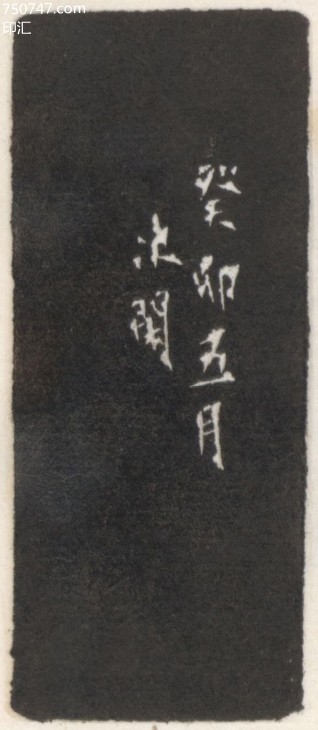 750747.com
印汇
癸卯五月
次閑